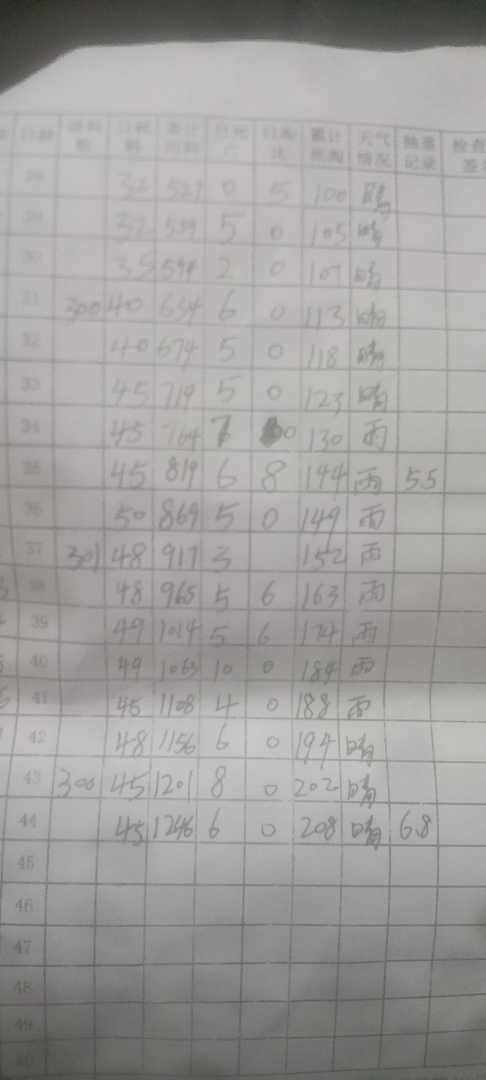 日龄 进料数 日耗料 累计用料 日死亡 日淘汰 累计死淘 天气情况 抽重记录 检查 签
32 527 0 5 100 晴
5 0 105 晴
30 35 594 2 0 107 晴
31 300 40 634 6 0 113 晴
32 40 674 5 0 118 晴
33 45 719 5 0 123 晴
34 45 764 0 130 雨
35 45 819 6 8 144 雨 5.5
36 50 869 5 0 149 雨
37 301 48 917 3 152 雨
38 48 965 5 6 163 雨
39 49 1014 5 6 174 雨
40 49 1063 10 0 184 雨
41 45 1108 4 0 188 雨
42 48 1156 6 0 194 晴
43 300 45 1201 8 0 202 晴
44 45 1246 6 0 208 晴 6.8
45
46
47
48
49